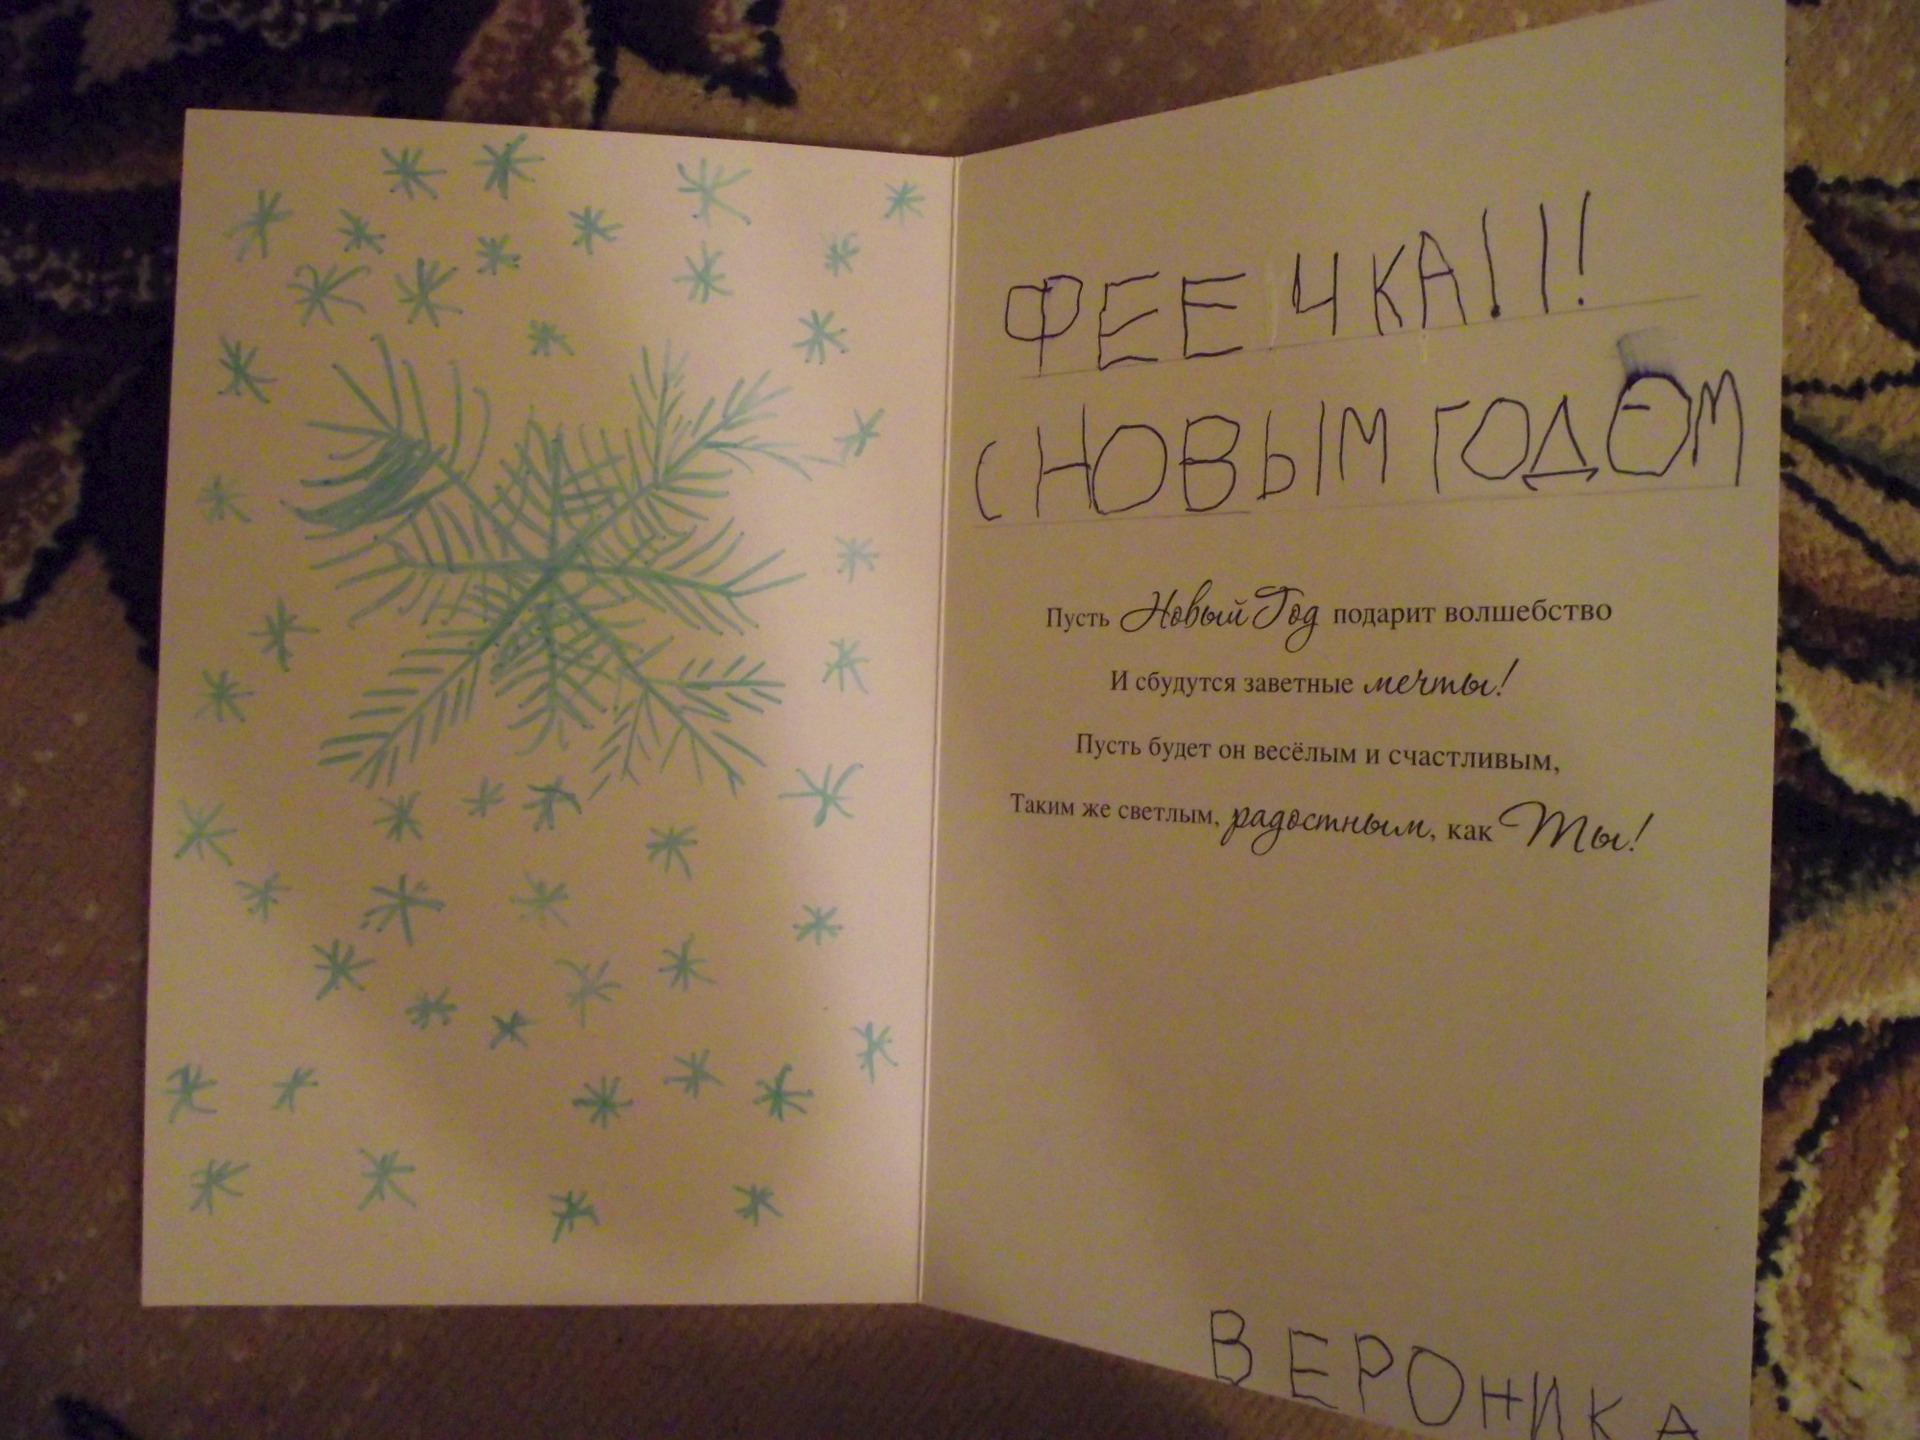 ФЕЕЧКА!!!
С НОВЫМ ГОДОМ
Пусть Новый Год подарит волшебство
И сбудутся заветные мечты!
Пусть будет он весёлым и счастливым,
Таким же светлым, радостным, как Ты!
ВЕРОНИКА